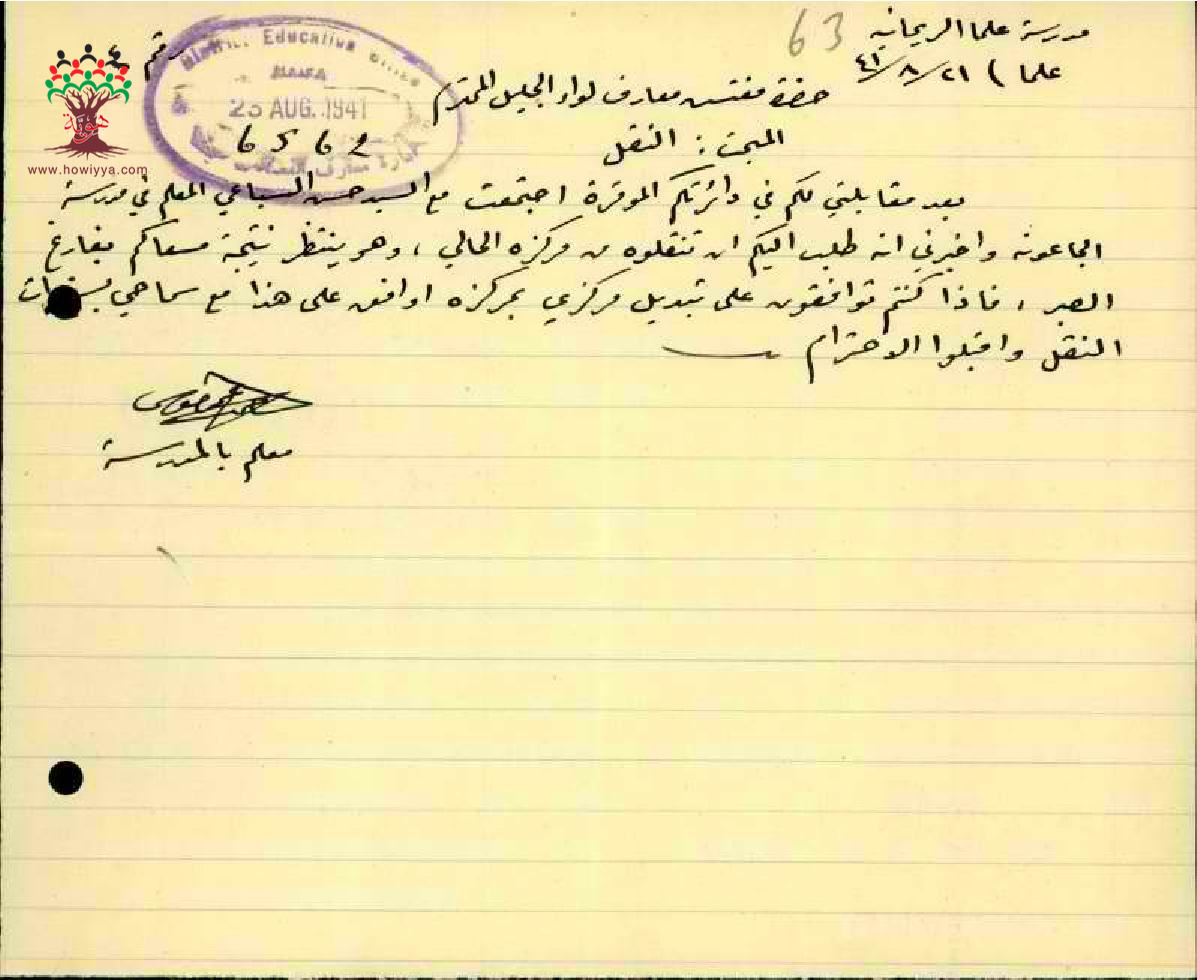 63
مدرسة علما الريحانيه
علما ) ٢١/٨/٤١
رقم ٤
District Education Office
HAIFA
23 AUG. 1941
6562
هوية
www.howiyya.com
حضرة مفتش معارف لواء الجليل المحترم
المبحث : النقل
بعد مقابلتي لكم في دائرتكم الموقرة اجتمعت مع السيد حسن السباعي المعلم في مدرسة
الجاعونه واخبرني انه طلب اليكم ان تنقلوه من مركزه الحالي ، وهو ينتظر نتيجة مسعاكم بفارغ
الصبر ، فاذا كنتم توافقون على تبديل مركزي بمركزه اوافق على هذا مع سماحي
النقل واقبلوا الاحترام
معلم بالمدرسة